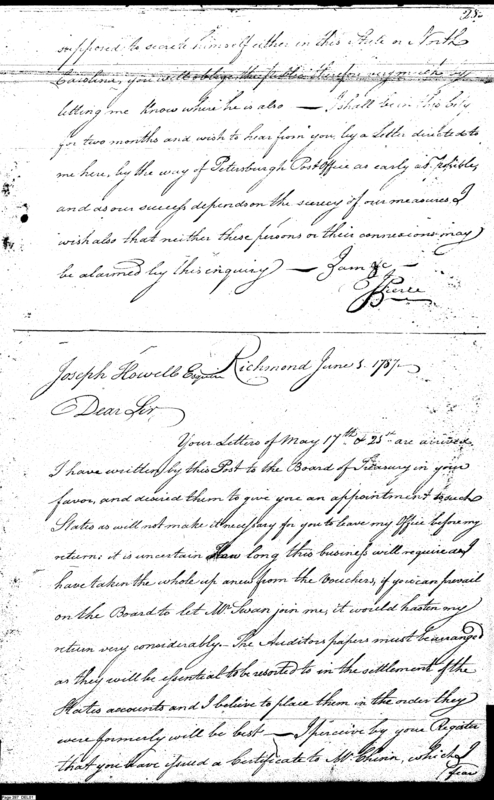 supposed to secrete himself either in this State or North
Carolina, you will oblige the public therefor very much by
letting me know where he is also — I shall be in this City
for two months and wish to hear from you, by a Letter directed to
me here, by the way of Petersburgh Post Office as early as Possible,
and as our success depends on the secrecy of our measures I
wish also that neither these persons or their connexions may
be alarmed by this inquiry — I am &c —
JPierce
Richmond June 5. 1787—
Joseph Howell Esquire
Dear Sir,
Your Letters of May 17th & 25th are arrived
I have written by this Post to the Board of Treasury in your
favor, and desired them to give you an appointment to such
States as will not make it necessary for you to leave my Office before my
return; it is uncertain How long this business will require as I
have taken the whole up anew from the Vouchers, if you can prevail
on the Board to let Mr. Swan join me, it would hasten my
return very considerably. The Auditors papers must be arranged
as they will be essential to be resorted to in the settlement of the
States accounts and I beleive to place them in the order they
were formerly will be best — I perceive by your Register
that you have issued a Certificate to Mr. Chinn, which I
fear